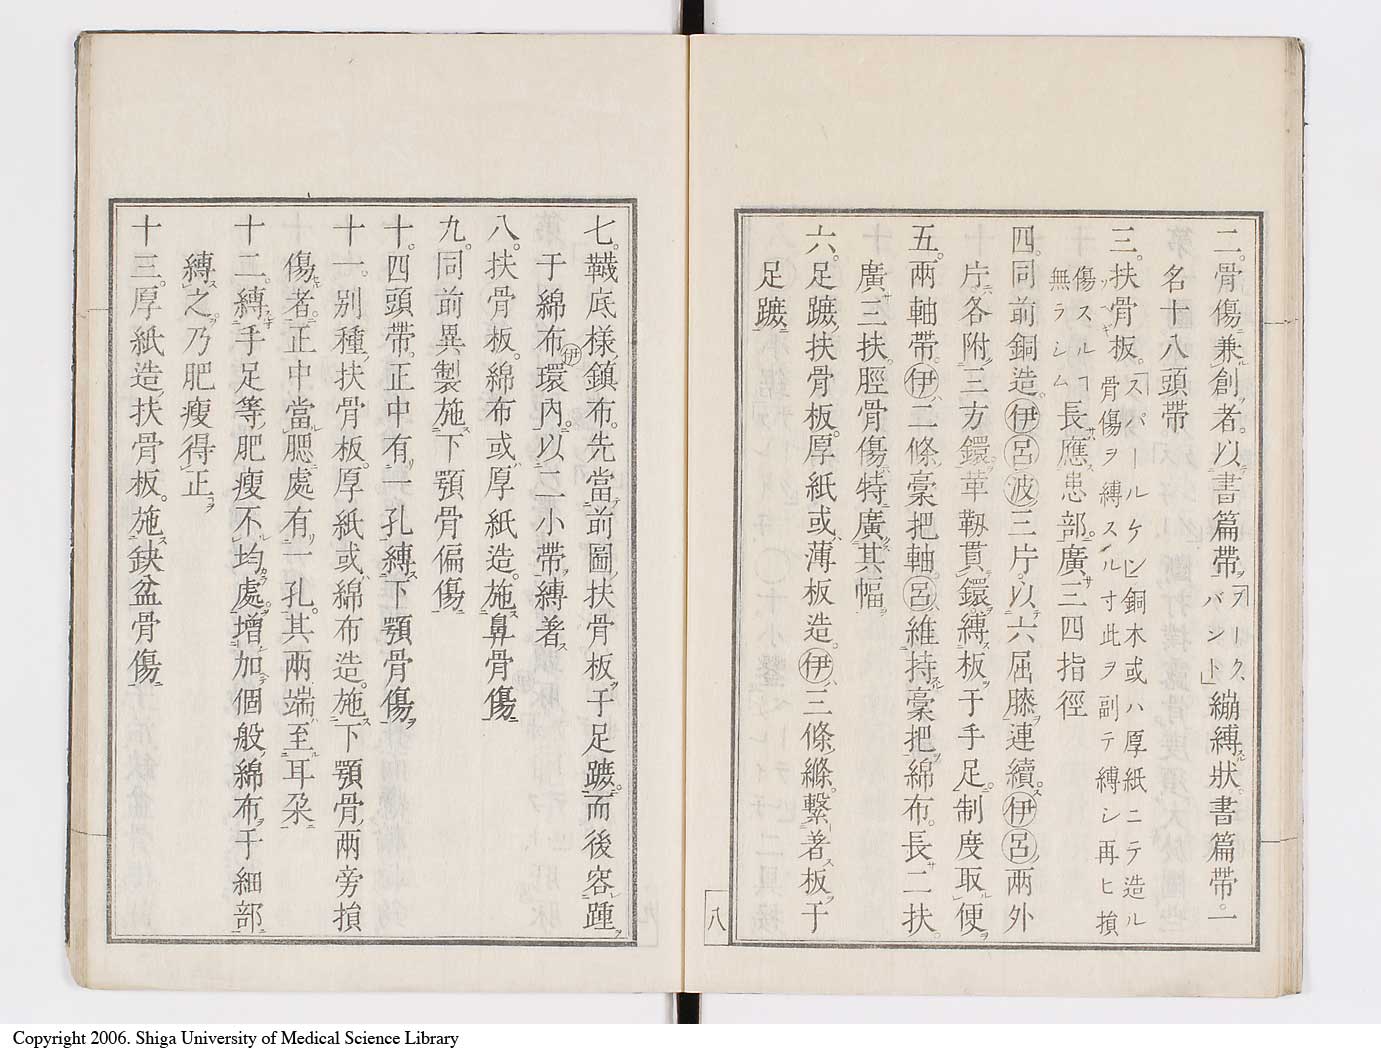 二。骨傷兼創者。以書篇帶「ブークバンド」繃縛状。書篇帶。一
名十八頭帶
三。扶骨板。「スパールケン」銅木或ハ厚紙ニテ造ル骨傷ヲ縛スル寸此ヲ副テ縛シ再ヒ損
傷スルヿ無ラシム長應患部。廣三四指徑
四。同前銅造。伊呂波三片。以六屈膝連續。伊呂兩外
片各附三方鐶。革靱貫鐶縛板于手足。制度取便
五。兩軸帶。伊二條稾把軸。呂維持稾把綿布。長二扶。
廣三扶。脛骨傷特廣其幅
六。足蹠扶骨板。厚紙或薄板造。伊三條縧。繫著板于
足蹠
八
七。韈底様鎮布。先當前圖扶骨板于足蹠。而後容踵
于綿布伊環内。以二小帶縛著
八。扶骨板。綿布或厚紙造。施鼻骨傷
九。同前異製。施下顎骨偏傷
十。四頭帶。正中有一孔。縛下顎骨傷
十一。別種扶骨板。厚紙或綿布造。施下顎骨兩旁損
傷者。正中當腮處有一孔。其兩端至耳朶
十二。縛手足等肥瘦不均處。增加個般綿布于細部
縛之。乃肥瘦得正
十三。厚紙造扶骨板。施缺盆骨傷
Copyright 2006. Shiga University of Medical Science Library